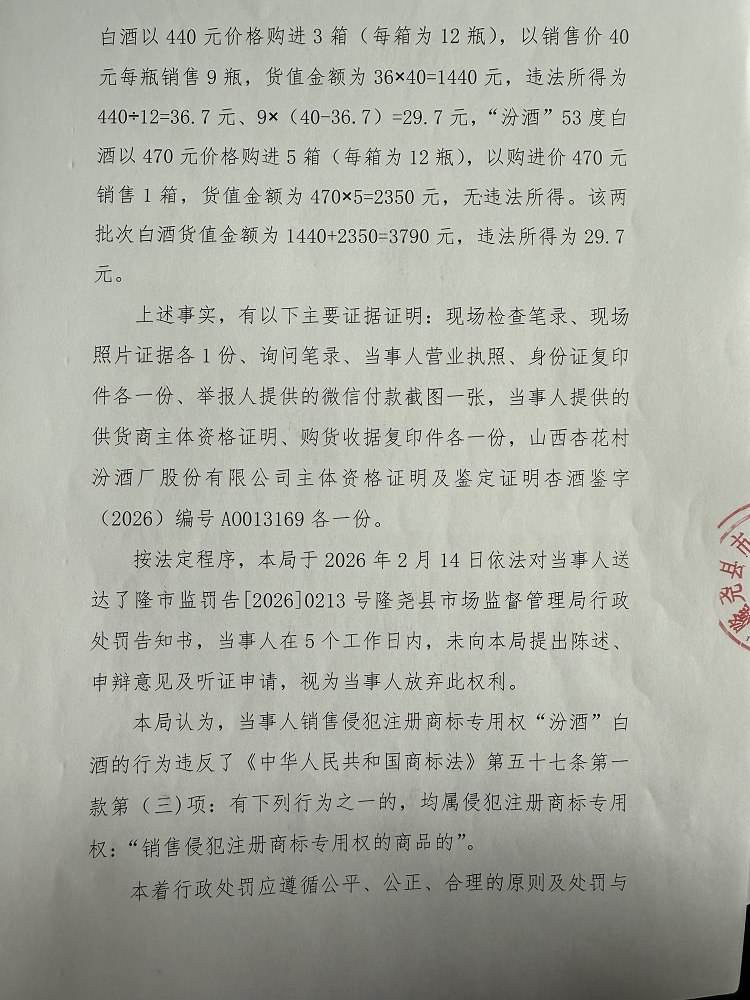 白酒以 440 元价格购进 3 箱（每箱为 12 瓶），以销售价 40
元每瓶销售 9 瓶，货值金额为 36×40=1440 元，违法所得为
440÷12=36.7 元、9×（40-36.7）=29.7 元，“汾酒”53 度白
酒以 470 元价格购进 5 箱（每箱为 12 瓶），以购进价 470 元
销售 1 箱，货值金额为 470×5=2350 元，无违法所得。该两
批次白酒货值金额为 1440+2350=3790 元，违法所得为 29.7
元。
上述事实，有以下主要证据证明：现场检查笔录、现场
照片证据各 1 份、询问笔录、当事人营业执照、身份证复印
件各一份、举报人提供的微信付款截图一张，当事人提供的
供货商主体资格证明、购货收据复印件各一份，山西杏花村
汾酒厂股份有限公司主体资格证明及鉴定证明杏酒鉴字
（2026）编号 A0013169 各一份。
按法定程序，本局于 2026 年 2 月 14 日依法对当事人送
达了隆市监罚告[2026]0213 号隆尧县市场监督管理局行政
处罚告知书，当事人在 5 个工作日内，未向本局提出陈述、
申辩意见及听证申请，视为当事人放弃此权利。
本局认为，当事人销售侵犯注册商标专用权“汾酒”白
酒的行为违反了《中华人民共和国商标法》第五十七条第一
款第（三)项：有下列行为之一的，均属侵犯注册商标专用
权：“销售侵犯注册商标专用权的商品的”。
本着行政处罚应遵循公平、公正、合理的原则及处罚与
尧县市